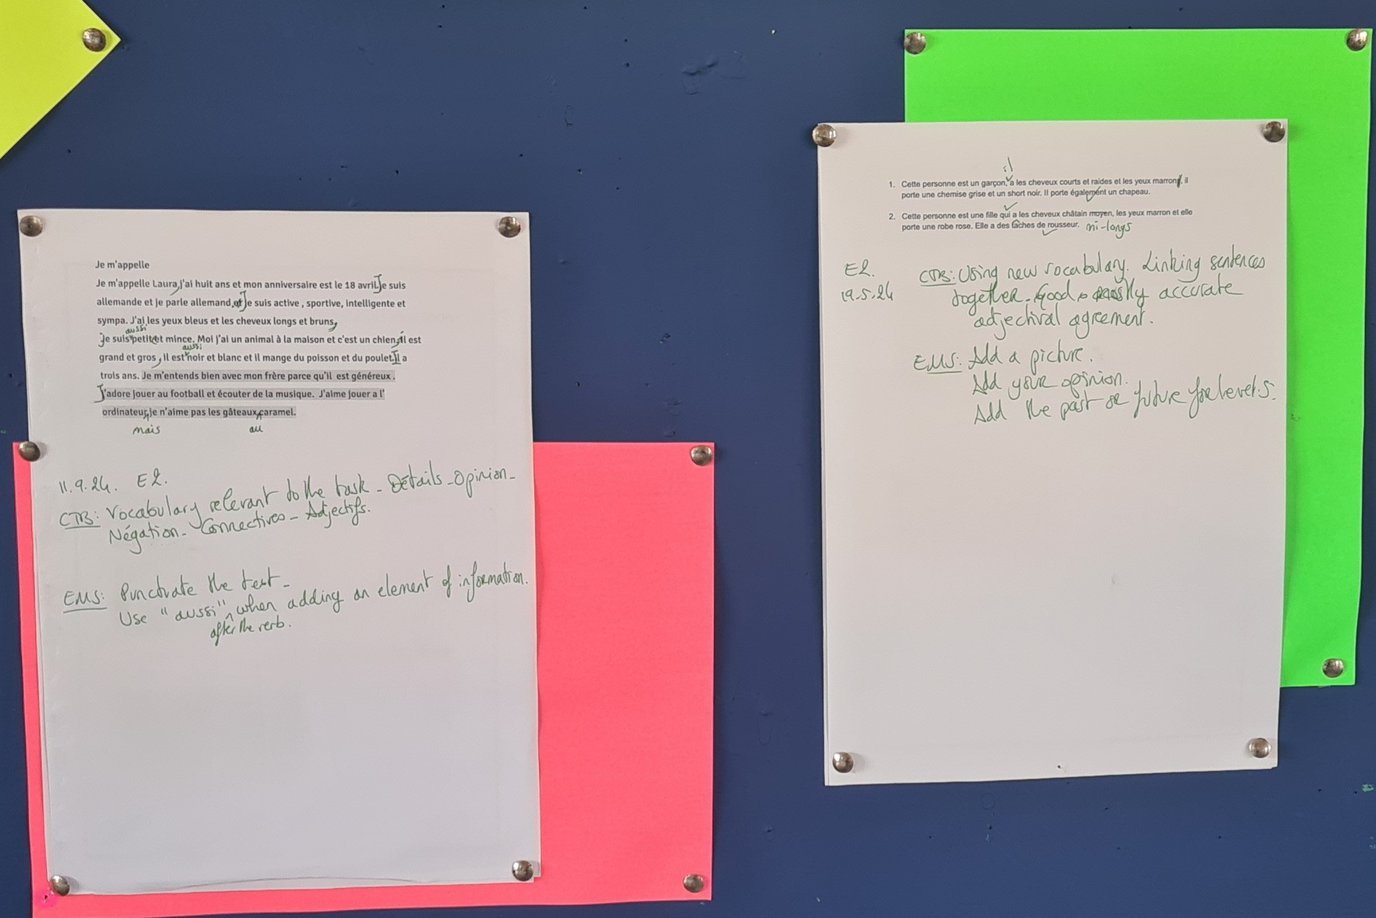 Je m'appelle
Je m'appelle Laura, j'ai huit ans et mon anniversaire est le 18 avril. Je suis
allemande et je parle allemand, et Je suis active , sportive, intelligente et
sympa. J'ai les yeux bleus et les cheveux longs et bruns,
aussi
je suis petite et mince. Moi j'ai un animal à la maison et c'est un chien, il est
aussi
grand et gros , il est noir et blanc et il mange du poisson et du poulet. Il a
trois ans. Je m'entends bien avec mon frère parce qu'il est généreux .
J'adore jouer au football et écouter de la musique. J'aime jouer a l'
ordinateur, je n'aime pas les gâteaux caramel.
mais au
11.9.24. E2.
CTB: Vocabulary relevant to the task - Détails - Opinion -
Négation - Connectives - Adjectifs.
EMS: Punctuate the text -
Use "aussi" when adding an element of information.
after the verb.
il
1. Cette personne est un garçon, a les cheveux courts et raides et les yeux marron, il
porte une chemise grise et un short noir. Il porte également un chapeau.
2. Cette personne est une fille qui a les cheveux châtain moyen, les yeux marron et elle
porte une robe rose. Elle a des tâches de rousseur. mi-longs
E2.
19.5.24
CTB: Using new vocabulary. Linking sentences
together. Good mostly accurate
adjectival agreement.
EMS: Add a picture.
Add your opinion.
Add the past or future for level 5.